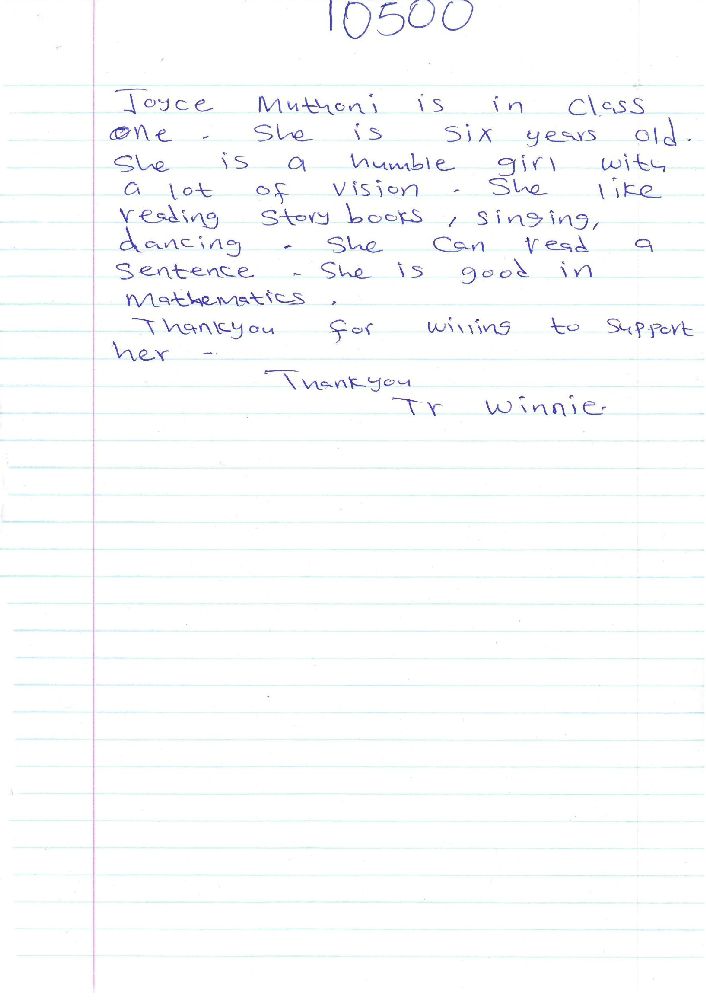 10500
Joyce Muthoni is in class
one. She is six years old.
She is a humble girl with
a lot of vision. She like
reading story books, singing,
dancing. She can read a
sentence. She is good in
mathematics.
Thankyou for willing to support
her.
Thankyou
Tr Winnie.